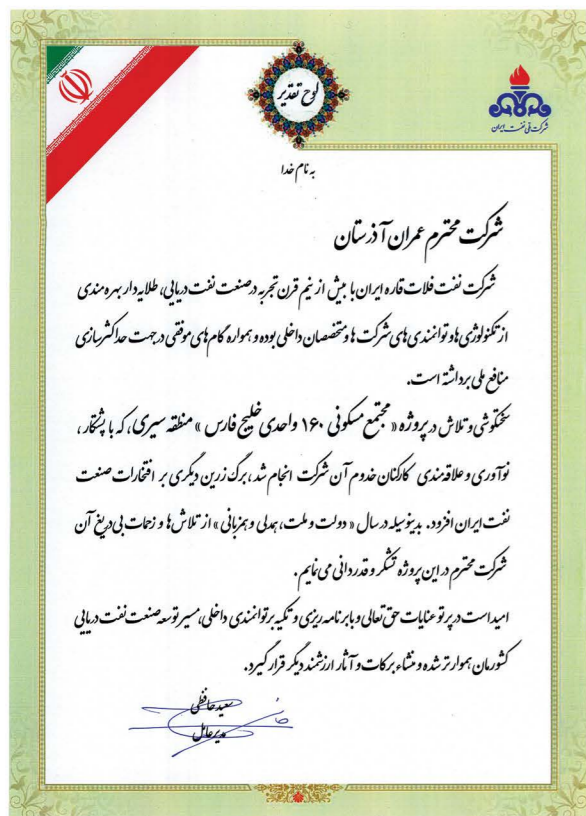 لوح تقدیر
شرکت ملی نفت ایران
به نام خدا
شرکت محترم عمران آذرستان
شرکت نفت فلات قاره ایران با بیش از نیم قرن تجربه در صنعت نفت دریایی، طلایه دار بهره مندی
از تکنولوژی ها و توانمندی های شرکت ها و متخصصان داخلی بوده و همواره گام های موفقی در جهت حداکثرسازی
منافع ملی برداشته است.
سختکوشی و تلاش در پروژه « مجتمع مسکونی ۱۶۰ واحدی خلیج فارس » منطقه سیری، که با پشتکار ،
نوآوری و علاقه مندی کارکنان خدوم آن شرکت انجام شد ، برگ زرین دیگری بر افتخارات صنعت
نفت ایران افزود. بدینوسیله در سال « دولت و ملت، همدلی و همزبانی » از تلاش ها و زحمات بی دریغ آن
شرکت محترم در این پروژه تشکر و قدردانی می نمایم .
امید است در پرتو عنایات حق تعالی و با برنامه ریزی و تکیه بر توانمندی داخلی، مسیر توسعه صنعت نفت دریایی
کشورمان هموارتر شده و منشاء برکات و آثار ارزشمند دیگر قرار گیرد.
سعید حافظی
مدیرعامل